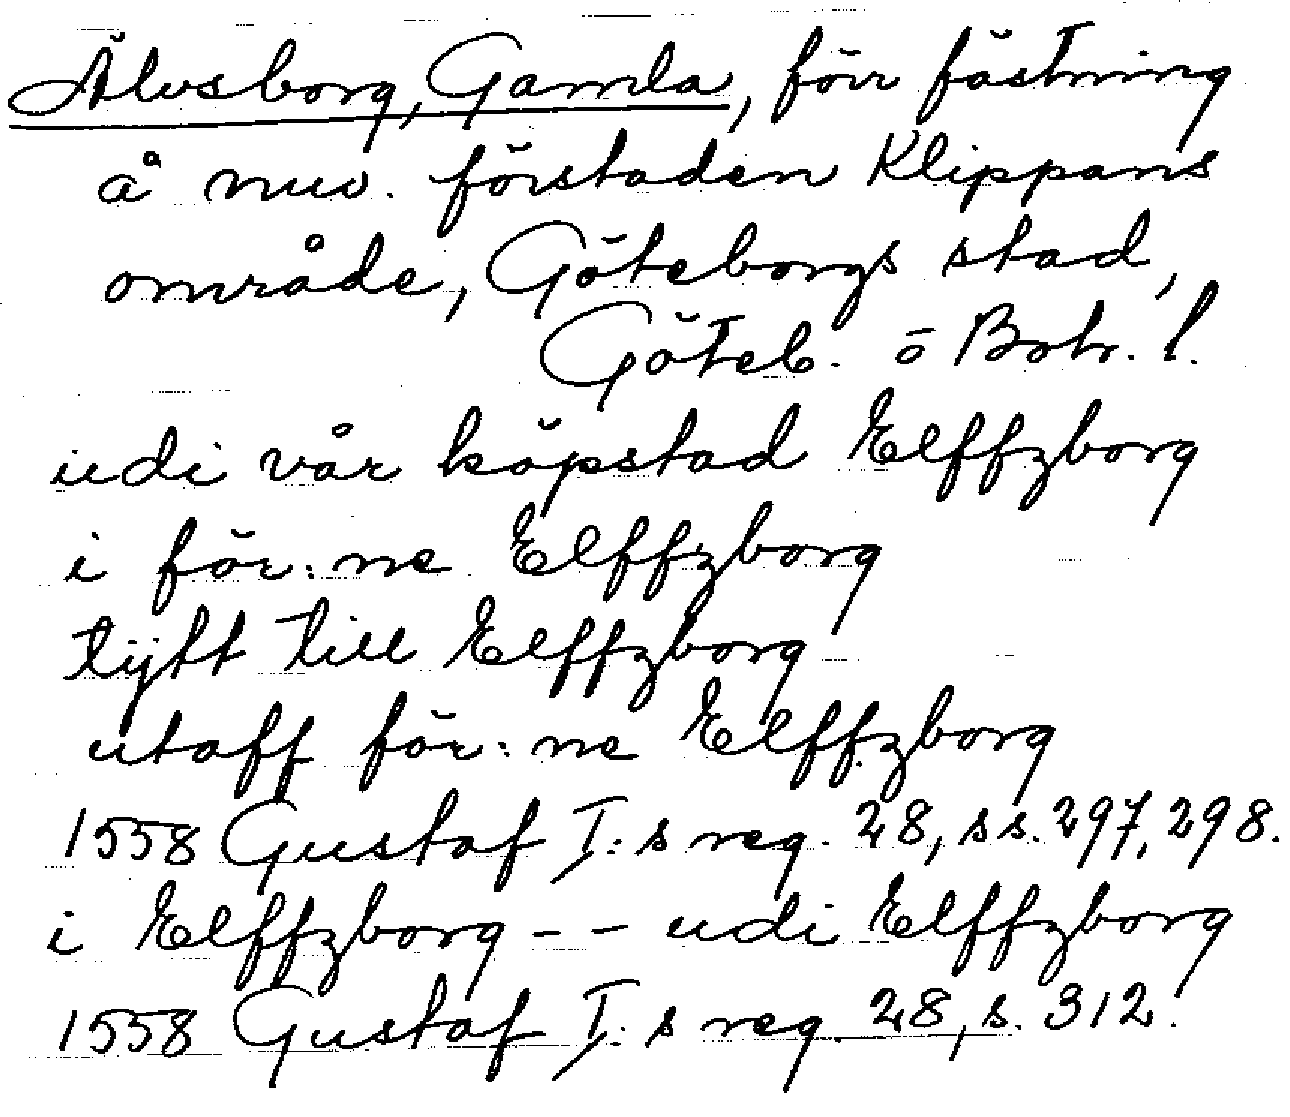 Älvsborg, Gamla, förr fästning
å nuv. förstaden Klippans
område, Göteborgs stad,
Göteb. o Boh. l.
udi vår köpstad Elffzborg
i för:ne Elffzborg
tijtt till Elffzborg
utaff för:ne Elffzborg
1558 Gustaf I:s reg. 28, ss. 297, 298.
i Elffzborg -- udi Elffzborg
1558 Gustaf I:s reg. 28, s. 312.